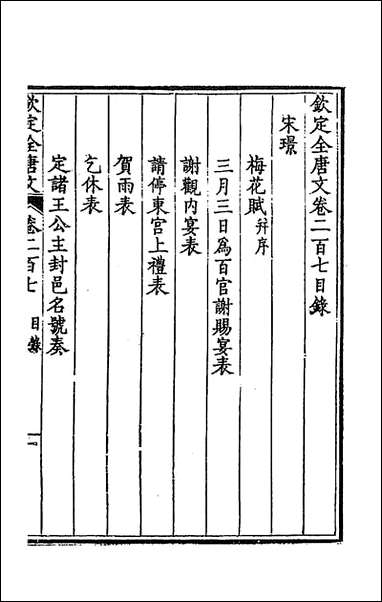 欽定全唐文卷二百七目錄
宋璟
梅花賦并序
三月三日為百官謝賜宴表
謝觀內宴表
請停東宮上禮表
賀雨表
乞休表
定諸王公主封邑名號奏
欽定全唐文 卷二百七 目錄 一